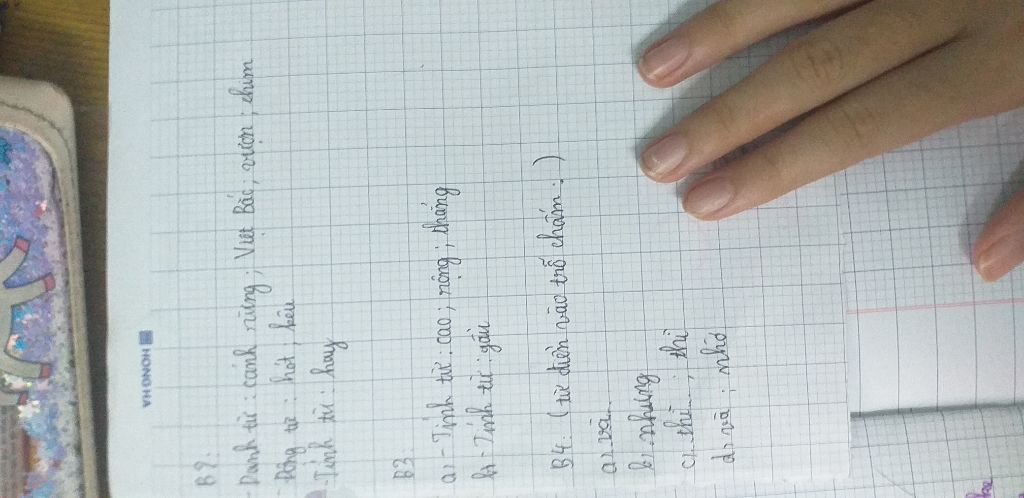 HONG HA
B2:
- Danh từ: cánh rừng; Việt Bắc; vượn; chim
- Động từ: hót; kêu
- Tính từ: hay
B3
a, - Tính từ: cao; rộng; thẳng
b, - Tính từ: gầy
B4: (từ điền vào trỗ chấm:)
a, và...
b, nhưng
c, thì...; thì
d, và; nhờ